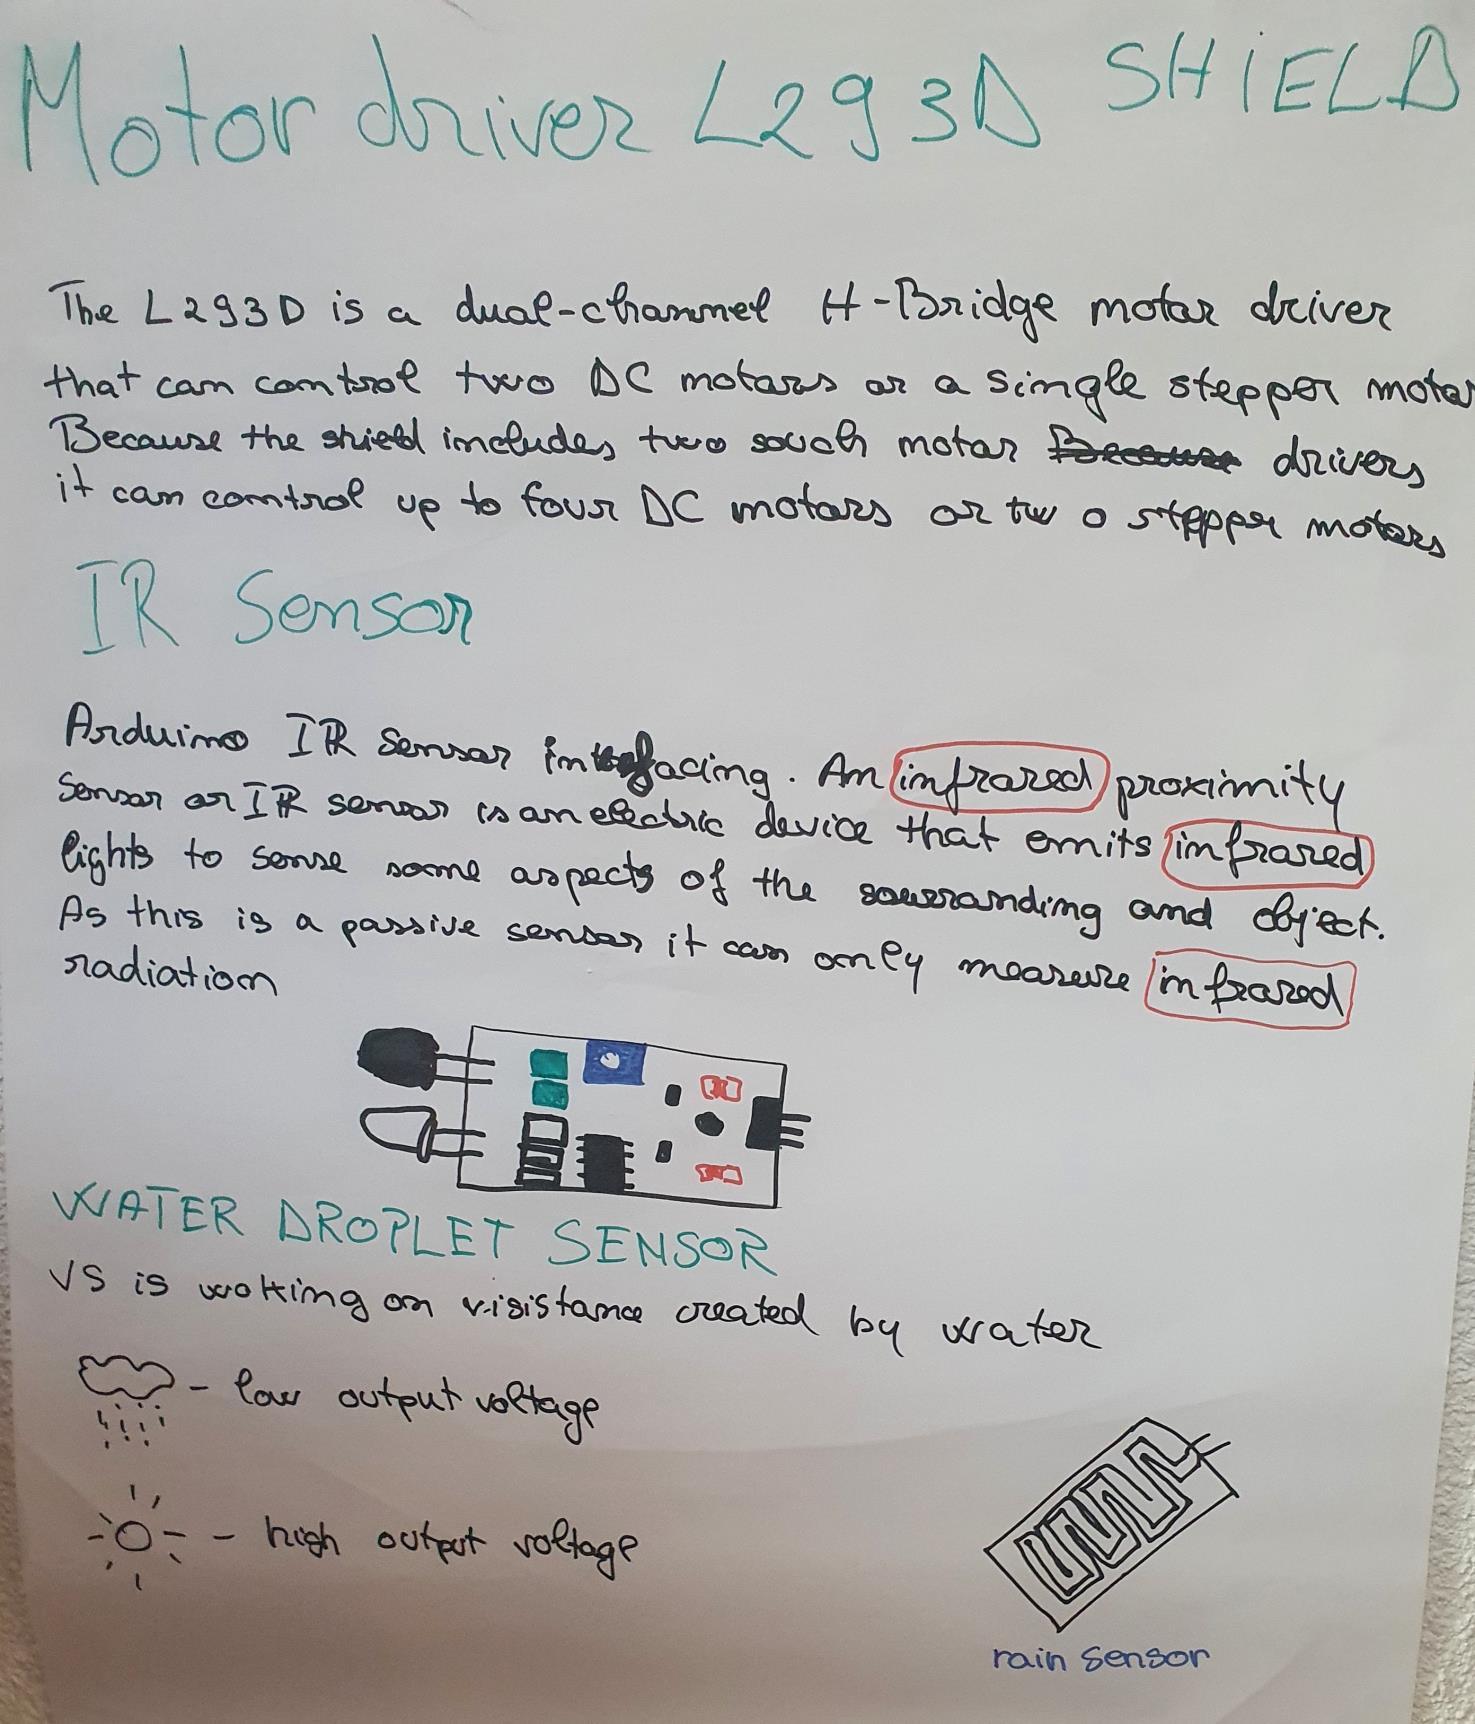 Motor driver L293D SHIELD
The L293D is a dual-channel H-Bridge motor driver
that can control two DC motors or a single stepper motor
Because the shield includes two souch motor Because drivers
it can control up to four DC motors or two stepper motors
IR Sensor
Arduino IR Sensor interfacing. An infrared proximity
Sensor or IR sensor is an electric device that emits infrared
lights to sense some aspects of the sourranding and object.
As this is a passive sensor it can only measure infrared
radiation
WATER DROPLET SENSOR
VS is working on risistance created by water
- low output voltage
- high output voltage
rain sensor